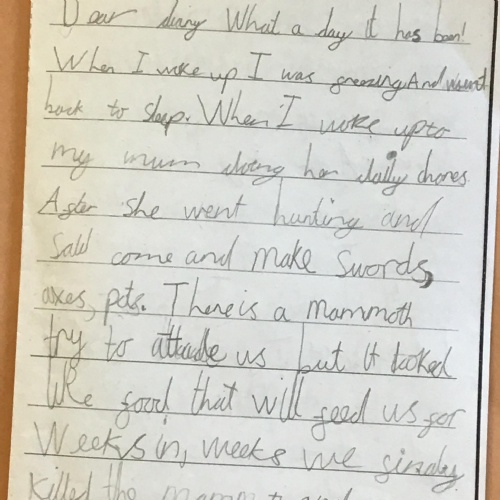 Dear diary What a day it has been!
When I woke up I was greezing And went
back to sleep. When I woke up to
my mum doing her daily chores
Agter she went hunting and
said come and make swords,
axes, pots. There is a mammoth
try to attacke us but it looked
like good that will geed us gor
Weeks in, weeks we ginaley
killed the mammoth and